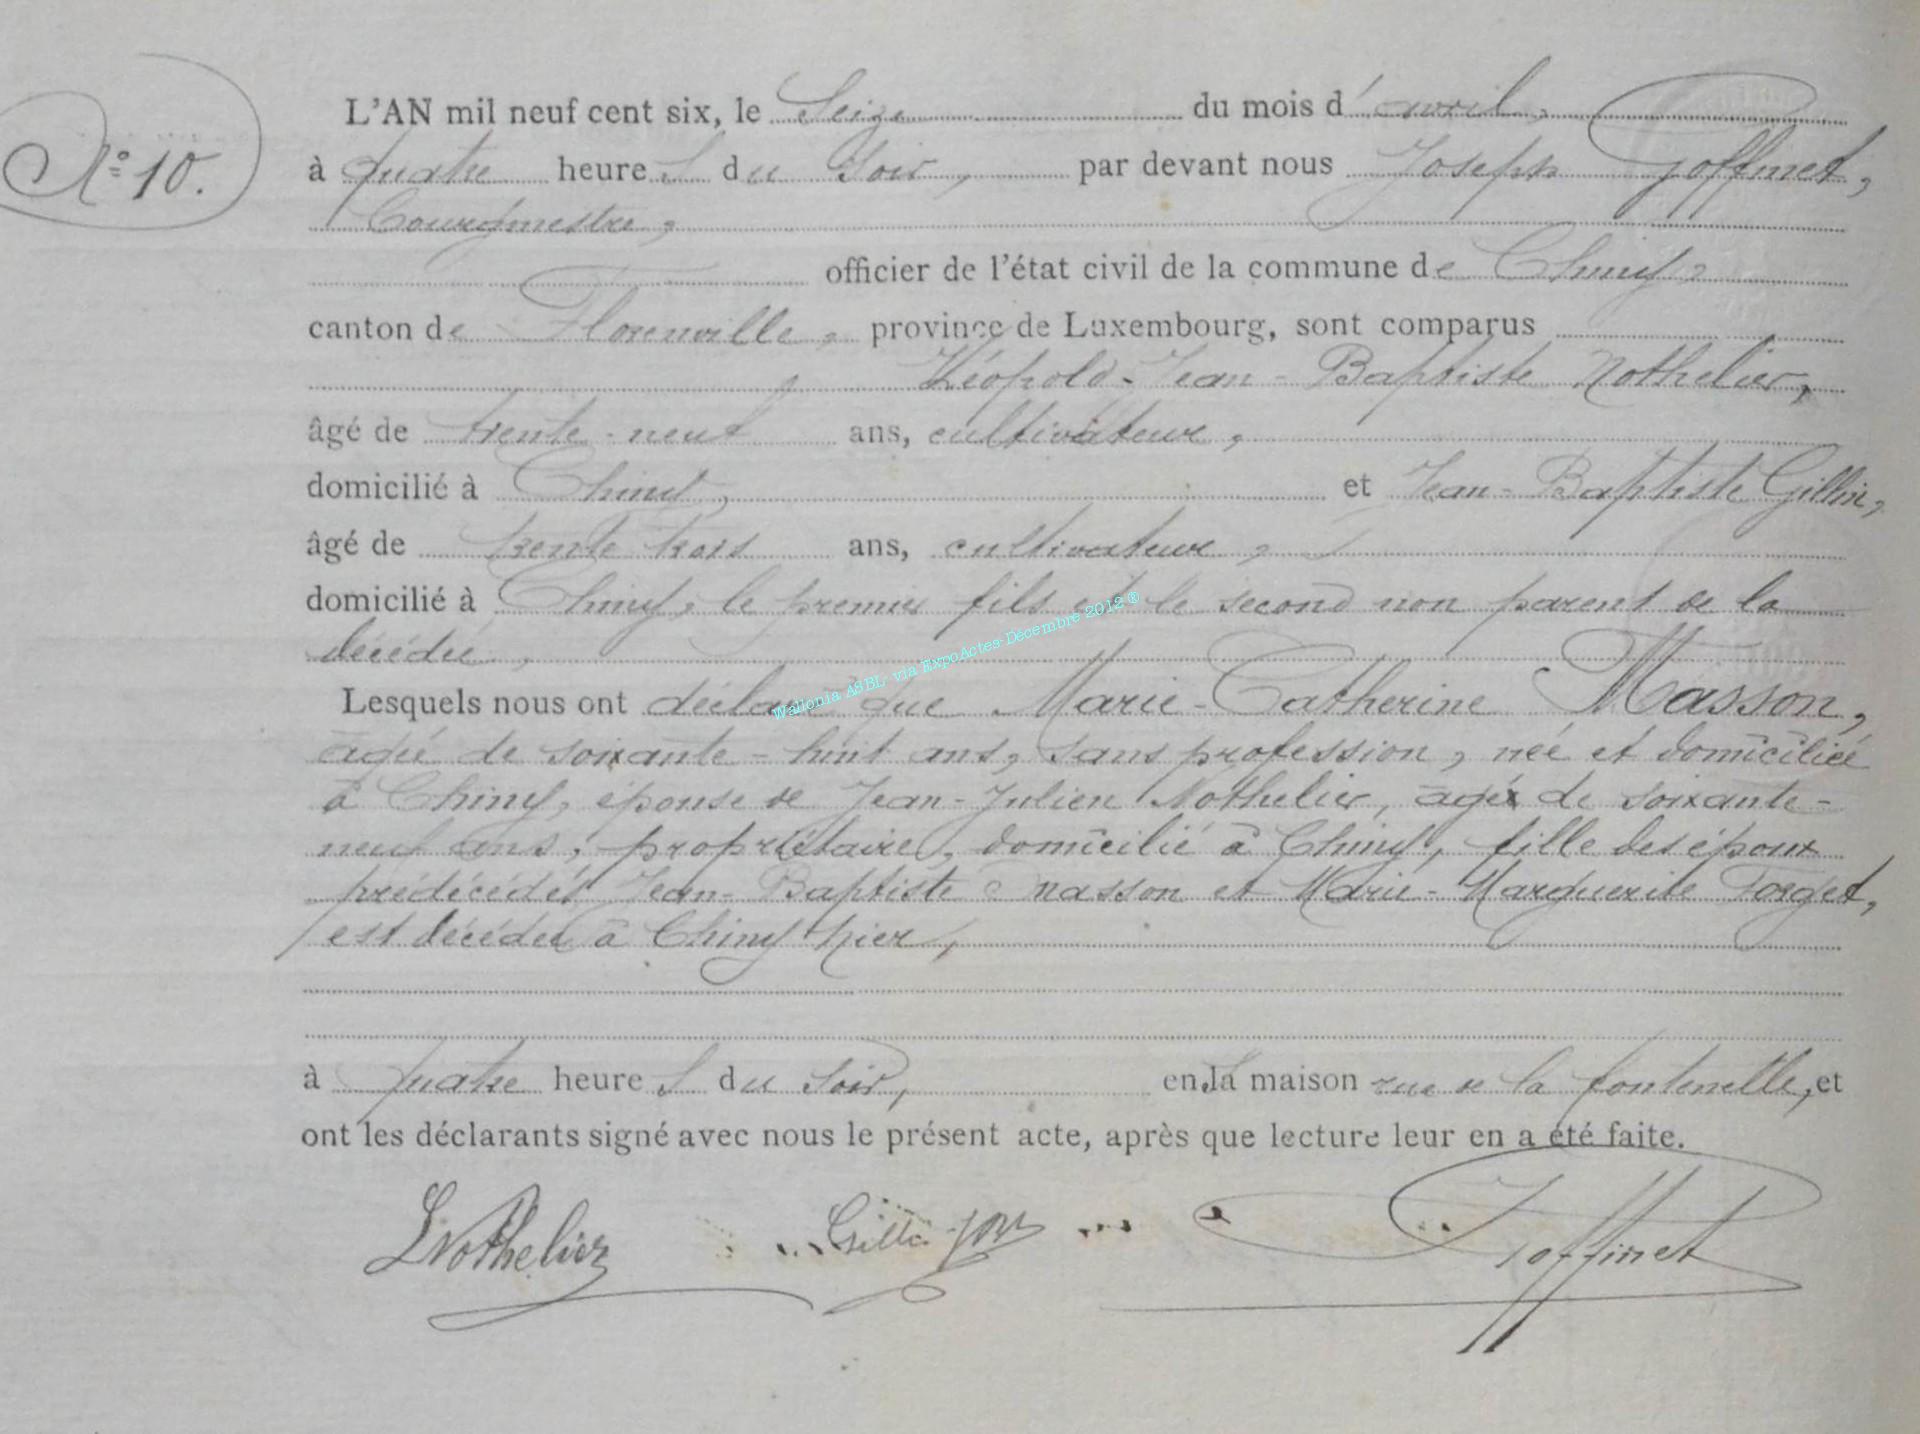 N° 10.
L'AN mil neuf cent six, le Seize du mois d'avril,
à quatre heures du soir, par devant nous Joseph Goffinet,
bourgmestre,
officier de l'état civil de la commune de Chiny,
canton de Florenville, province de Luxembourg, sont comparus
Léopold-Jean-Baptiste Nothelier,
âgé de trente-neuf ans, cultivateur,
domicilié à Chiny, et Jean-Baptiste Gillin,
âgé de trente trois ans, cultivateur,
domicilié à Chiny, le premier fils et le second non parent de la
décédée,
Lesquels nous ont déclaré que Marie-Catherine Masson,
agée de soixante-huit ans, sans profession, née et domiciliée
à Chiny, épouse de Jean-Julien Nothelier, agé de soixante-
neuf ans, propriétaire, domicilié à Chiny, fille des époux
prédécédés Jean-Baptiste Masson et Marie-Marguerite Forget,
est décédée à Chiny hier,
à quatre heures du soir, en la maison rue de la fontenelle, et
ont les déclarants signé avec nous le présent acte, après que lecture leur en a été faite.
LNothelier Goffinet
Wallonia ASBL- via ExpoActes-Décembre 2012 ®